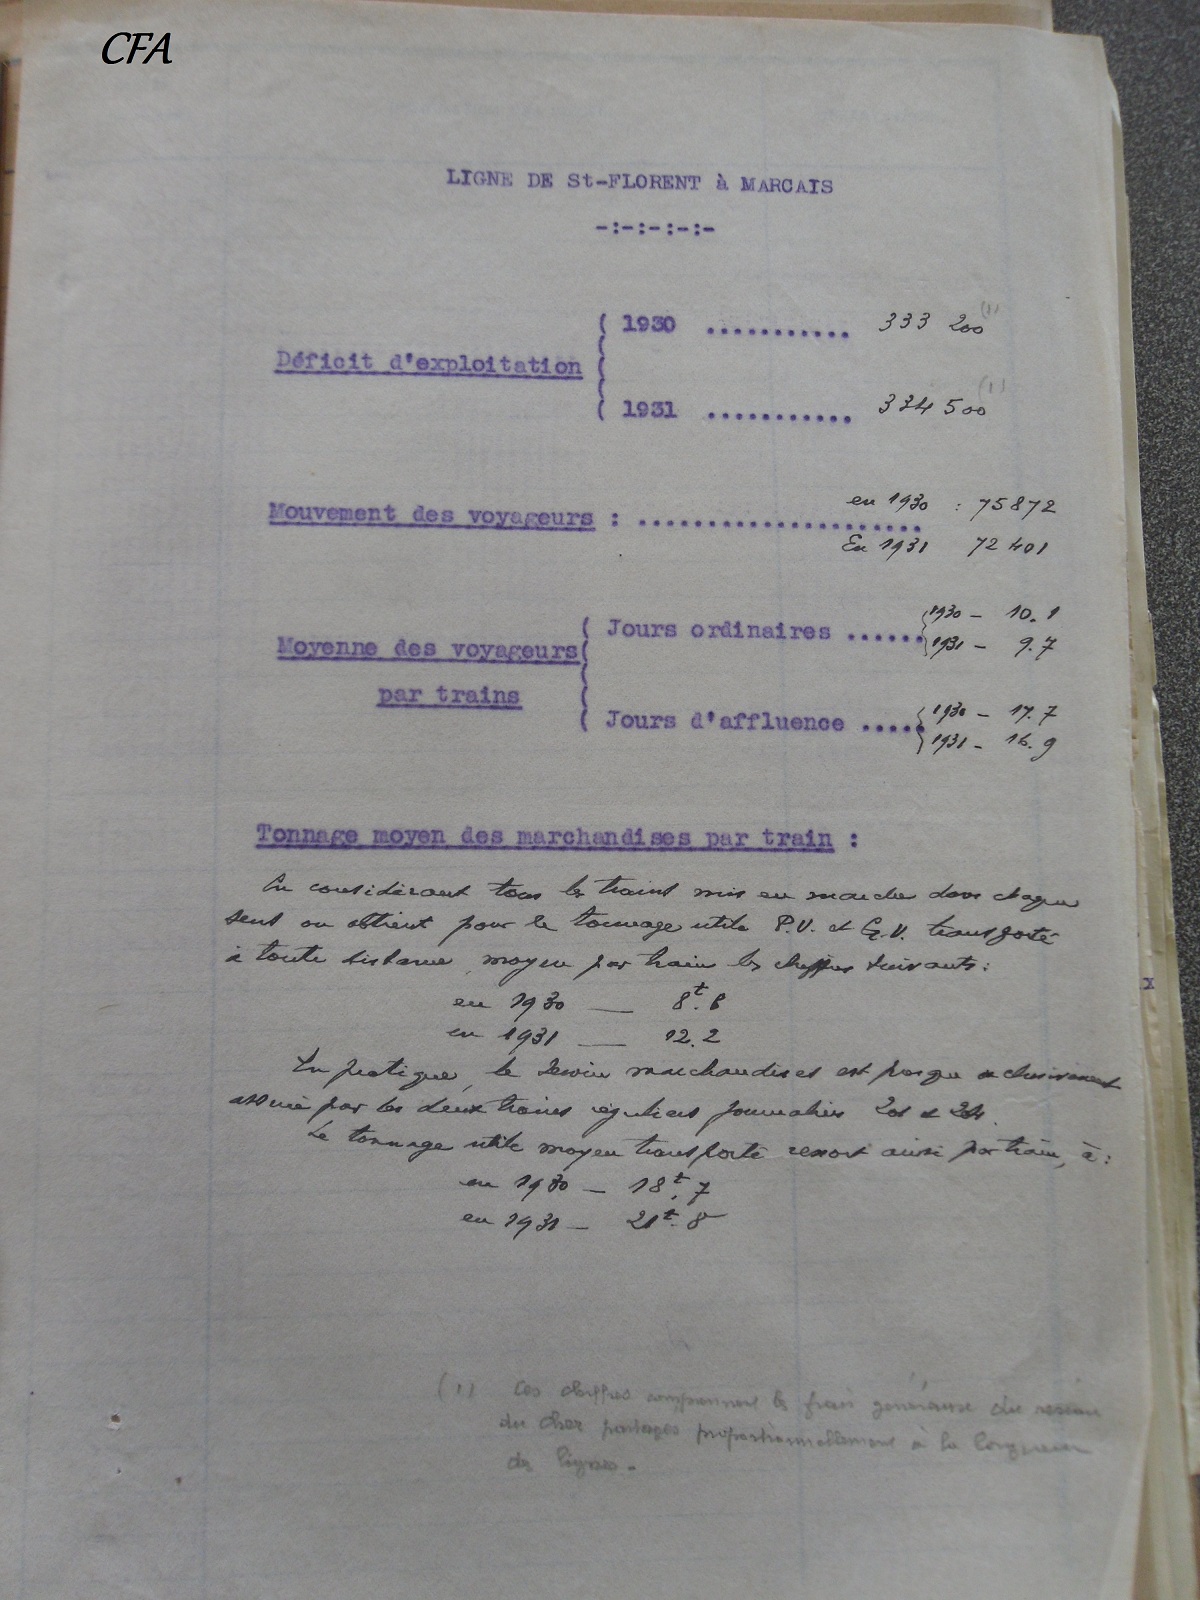 CFA
LIGNE DE St-FLORENT à MARCAIS
-:-:-:-:-
Déficit d'exploitation
( 1930 ........... 333 200 (1)
( 1931 ........... 334 500 (1)
Mouvement des voyageurs : ..................... en 1930 : 75872
En 1931 72 401
Moyenne des voyageurs
par trains
( Jours ordinaires ...... 1930 - 10.1
1931 - 9.7
( Jours d'affluence ..... 1930 - 17.7
1931 - 16.9
Tonnage moyen des marchandises par train :
En considérant tous les trains mis en marche dans chaque
sens on obtient pour le tonnage utile P.V. et G.V. transporté
à toute distance, moyen par train les chiffres suivants :
en 1930 — 8t.
en 1931 — 12.2
En pratique, le service marchandises est presque exclusivement
assuré par les deux trains réguliers journaliers
Le tonnage utile moyen transporté ressort ainsi par train, à :
en 1930 — 18t.7
en 1931 — 21t.8
(1) Ces chiffres comprennent les frais généraux du réseau
du Cher partagés proportionnellement à la longueur
des lignes.
x